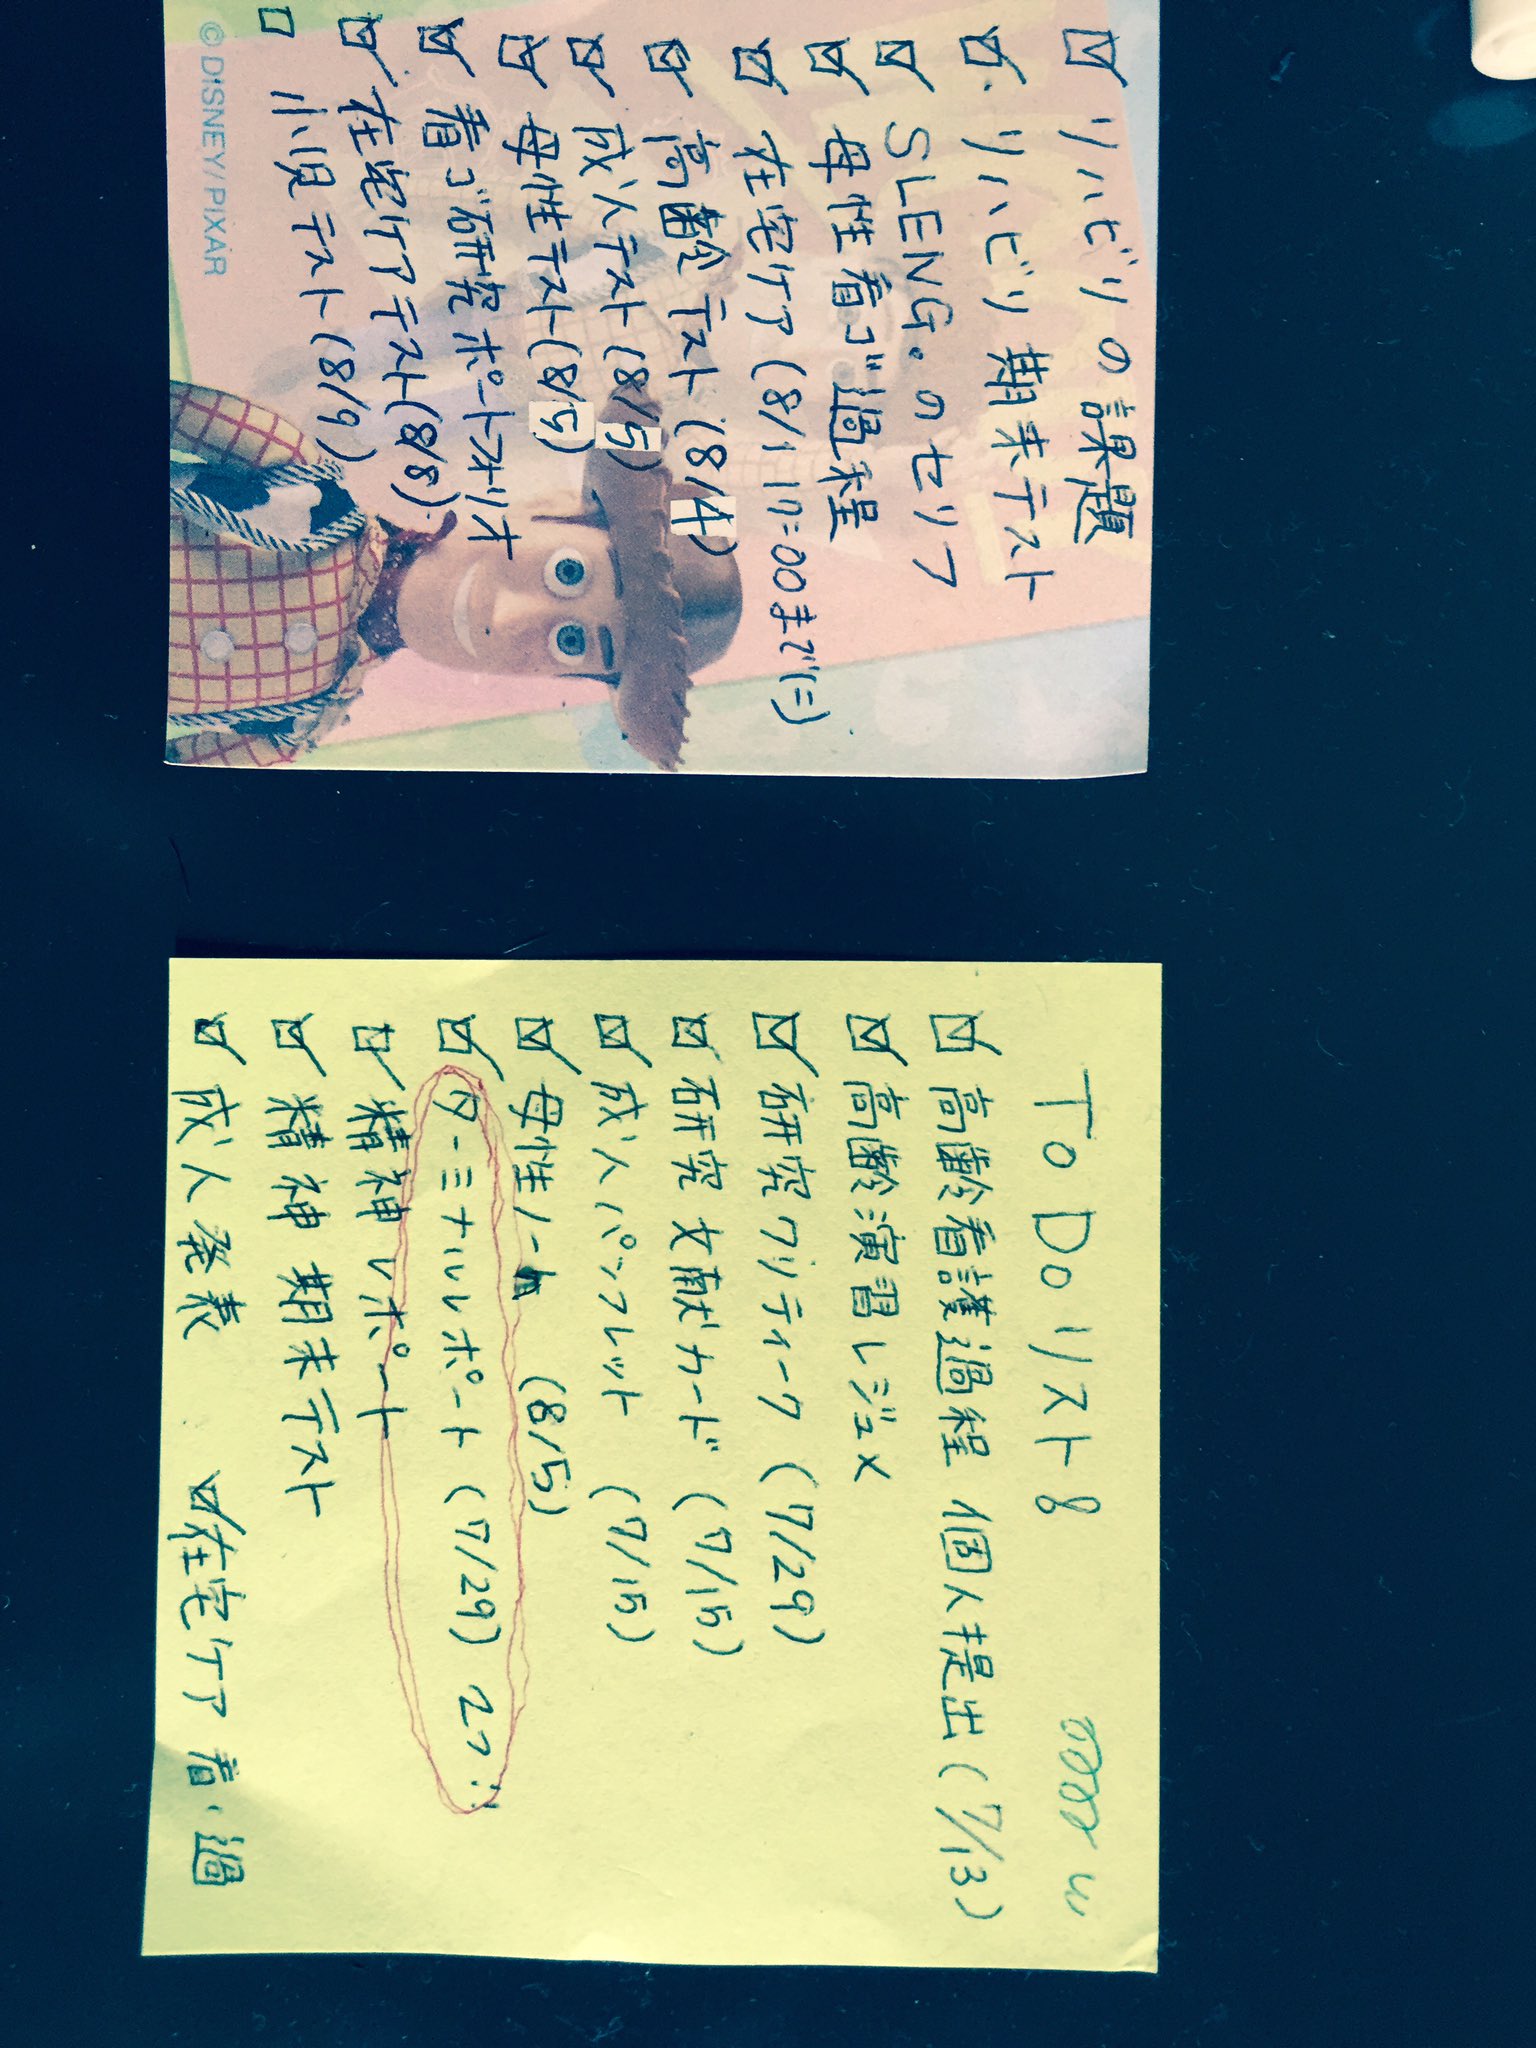 リハビリの課題
リハビリ期末テスト
SLENG。のセリフ
母性看ゴ過程
在宅ケア(8/1 17=00まで(=)
高齢テスト(8/4)
成人テスト(8/5)
母性テスト(8/5)
看ゴ研究ポートフォリオ
在宅ケアテスト(8/8)
小児テスト(8/9)
©DISNEY/PIXAR
To Do リスト8
高齢看護過程 個人提出(7/13)
高齢演習レジュメ
研究クリティーク (7/29)
研究文献カード (7/15)
成人パンフレット (7/15)
母性ノート (8/5)
ターミナルレポート (7/29) 2つ
精神レポート
精神期末テスト
成人発表 在宅ケア看・過